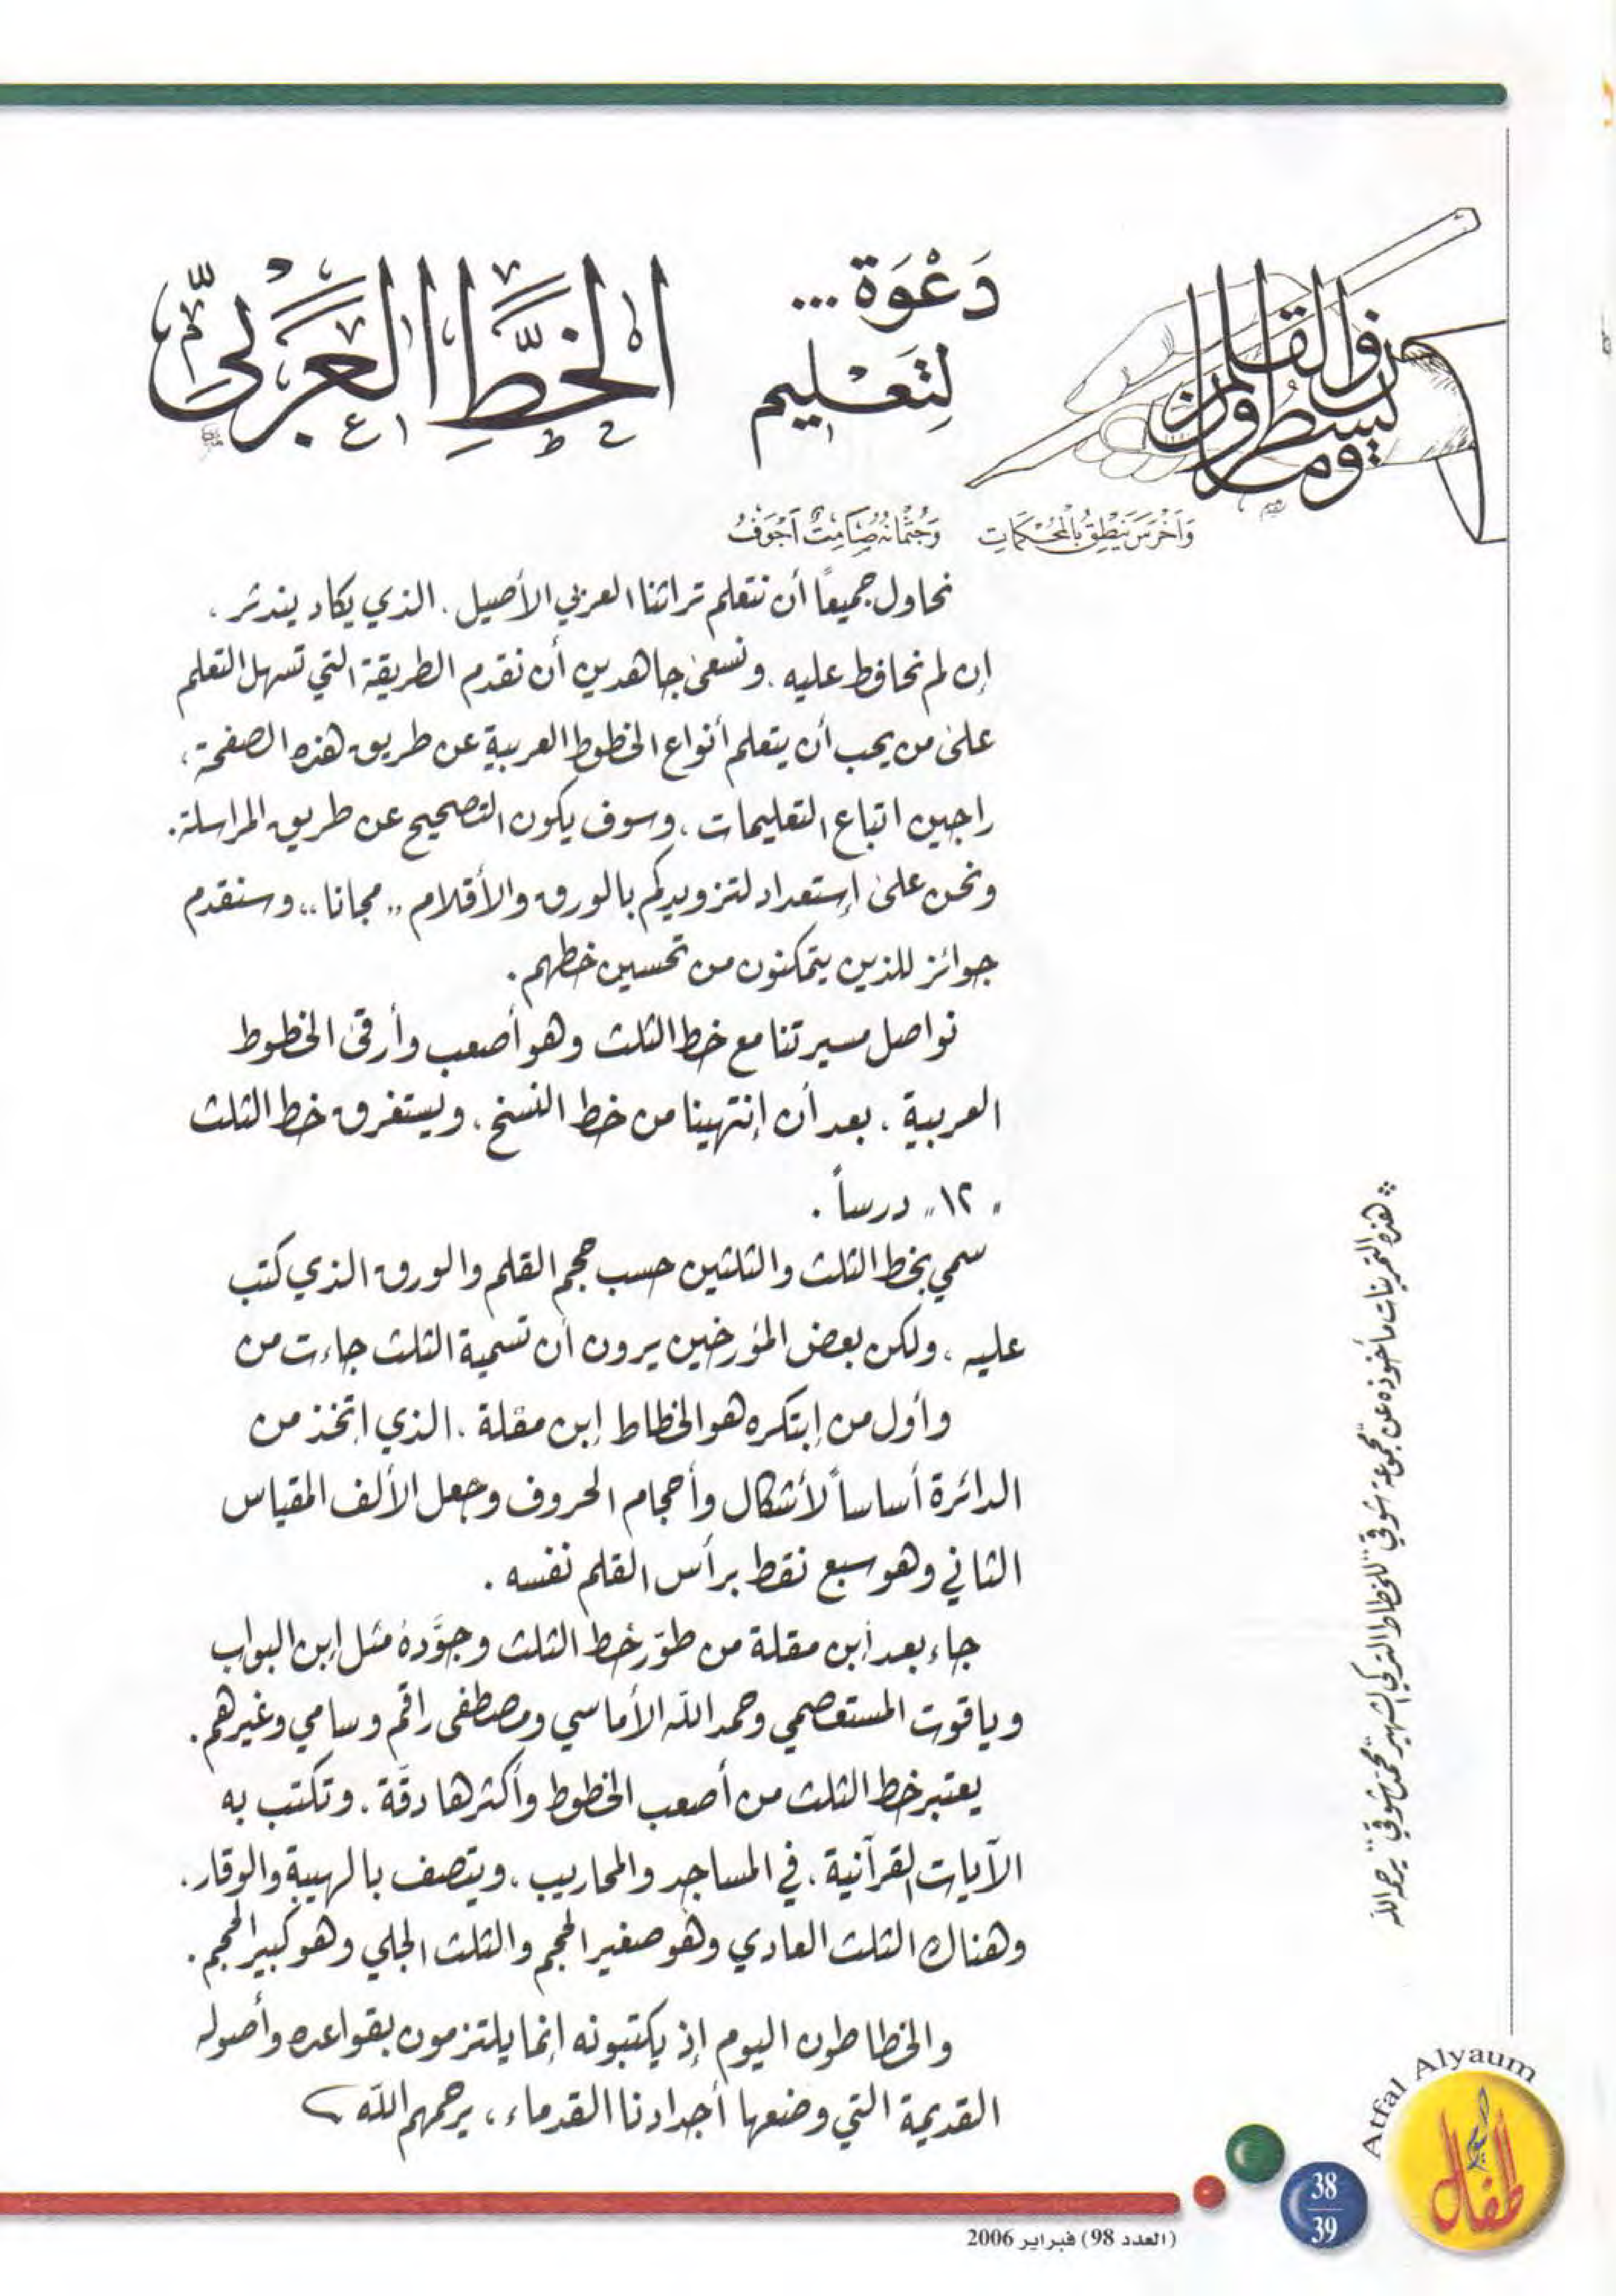 ن والقلم وما يسطرون
دَعْوَة ...
لِتَعْليم
الخَطِّ العَرَبيّ
وَأَخْرَسَ يَنْطِقُ بِالْمُحْكَمَاتِ وَجُثْمَانُهُ صَامِتٌ أَجْوَفُ
نحاول جميعاً أن نتعلم تراثنا العربي الأصيل . الذي يكاد يندثر ،
إن لم نحافظ عليه . ونسعى جاهدين أن نقدم الطريقة التي تسهل التعلم
على من يحب أن يتعلم أنواع الخطوط العربية عن طريق هذه الصفحة ،
راجين اتباع التعليمات ، وسوف يكون التصحيح عن طريق المراسلة .
ونحن على إستعداد لتزويدكم بالورق والأقلام ,, مجانا ,, وسنقدم
جوائز للذين يتمكنون من تحسين خطهم .
نواصل مسيرتنا مع خط الثلث وهو أصعب وأرقى الخطوط
العربية . بعد أن إنتهينا من خط النسخ . ويستغرق خط الثلث
,, ١٢ ,, درساً .
سمي بخط الثلث والثلثين حسب حجم القلم والورق الذي كتب
عليه ، ولكن بعض المؤرخين يرون أن تسمية الثلث جاءت من
وأول من إبتكره هو الخطاط إبن مقلة . الذي اتخذ من
الدائرة أساساً لأشكال وأحجام الحروف وجعل الألف المقياس
الثاني وهو سبع نقط برأس القلم نفسه .
جاء بعد أبن مقلة من طوّر خط الثلث وجوَّدهُ مثل إبن البواب
وياقوت المستعصمي وحمد الله الأماسي ومصطفى راقم وسامي وغيرهم .
يعتبر خط الثلث من أصعب الخطوط وأكثرها دقّة . وتكتب به
الآيات القرآنية . في المساجد والمحاريب . ويتصف بالهيبة والوقار .
وهناك الثلث العادي وهو صغير الحجم والثلث الجلي وهو كبير الحجم .
والخطاطون اليوم إذ يكتبونه إنما يلتزمون بقواعده وأصوله
القديمة التي وضعها أجدادنا القدماء ، يرحمهم الله
هذه التمرينات مأخوذة عن "مجموعة شوقي" للخطاط التركي الشهير "محمد شوقي" يرحمه الله
Atfal Alyaum
أطفال اليوم
38
39
(العدد 98) فبراير 2006